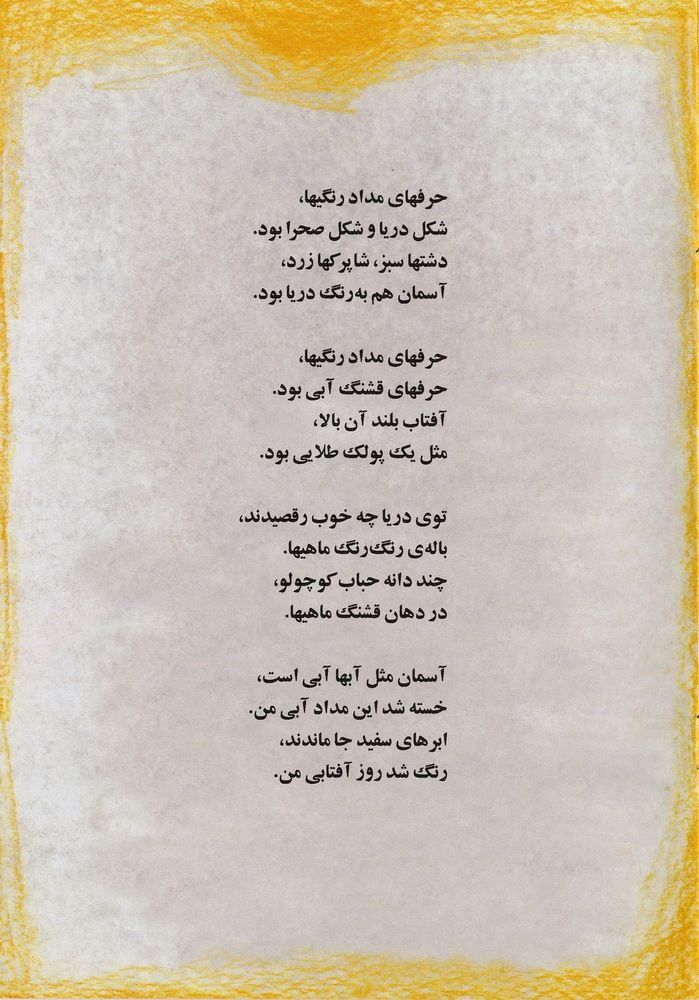 حرفهای مداد رنگیها،
شکل دریا و شکل صحرا بود.
دشتها سبز، شاپرکها زرد،
آسمان هم به‌رنگ دریا بود.
حرفهای مداد رنگیها،
حرفهای قشنگ آبی بود.
آفتاب بلند آن بالا،
مثل یک پولک طلایی بود.
توی دریا چه خوب رقصیدند،
باله‌ی رنگ‌رنگ ماهیها.
چند دانه حباب کوچولو،
در دهان قشنگ ماهیها.
آسمان مثل آبها آبی است،
خسته شد این مداد آبی من.
ابرهای سفید جا ماندند،
رنگ شد روز آفتابی من.